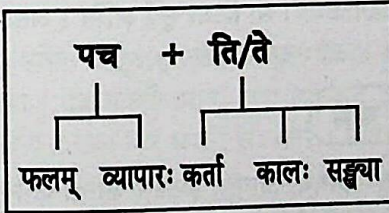 पच + ति/ते
फलम् व्यापारः कर्ता कालः सङ्ख्या